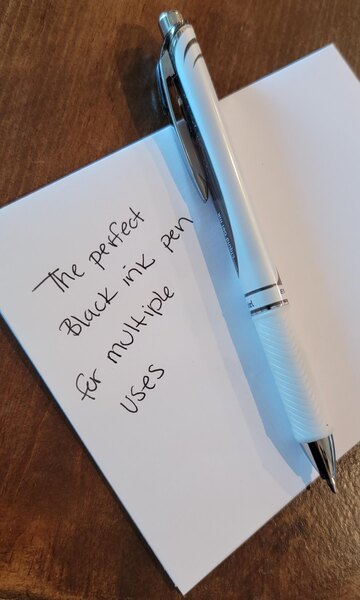 The perfect
Black ink pen
for multiple
uses